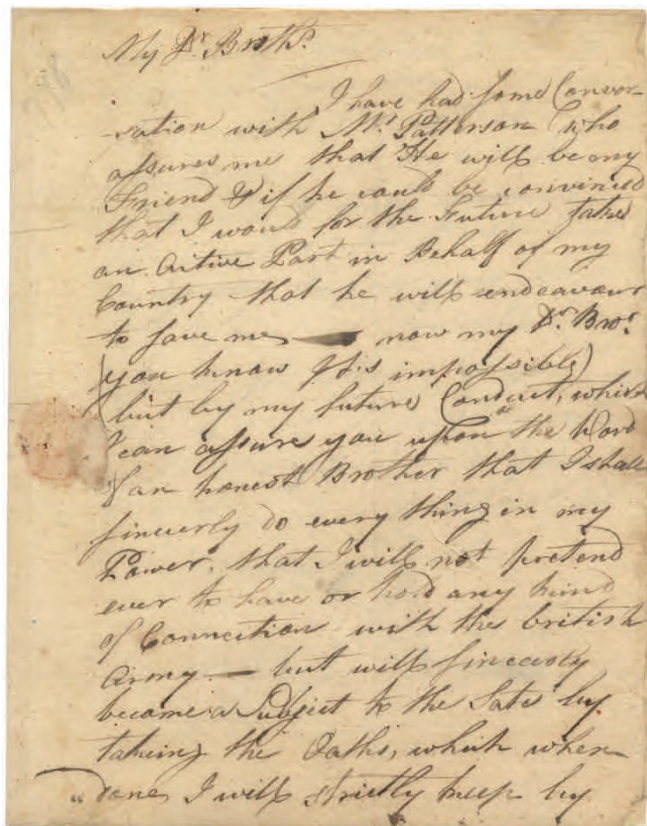 My Dr. Brothr.
I have had some Conver-
-sation with Mr. Patterson who
assures me that He will be my
Friend & if he could be convinced
that I would for the Future take
an Active Part in Behalf of my
Country that he will endeavour
to save me — now my Dr. Bror.
(you know 'tis impossible)
but by my future Conduct, which
I can assure you upon the Word
of an honest Brother that I shall
sincerly do every thing in my
Power, that I will not pretend
ever to have or hold any kind
of Connection with the british
Army — but will sincerely
become a Subject to the State by
taking the Oaths, which when
done, I will strictly keep by